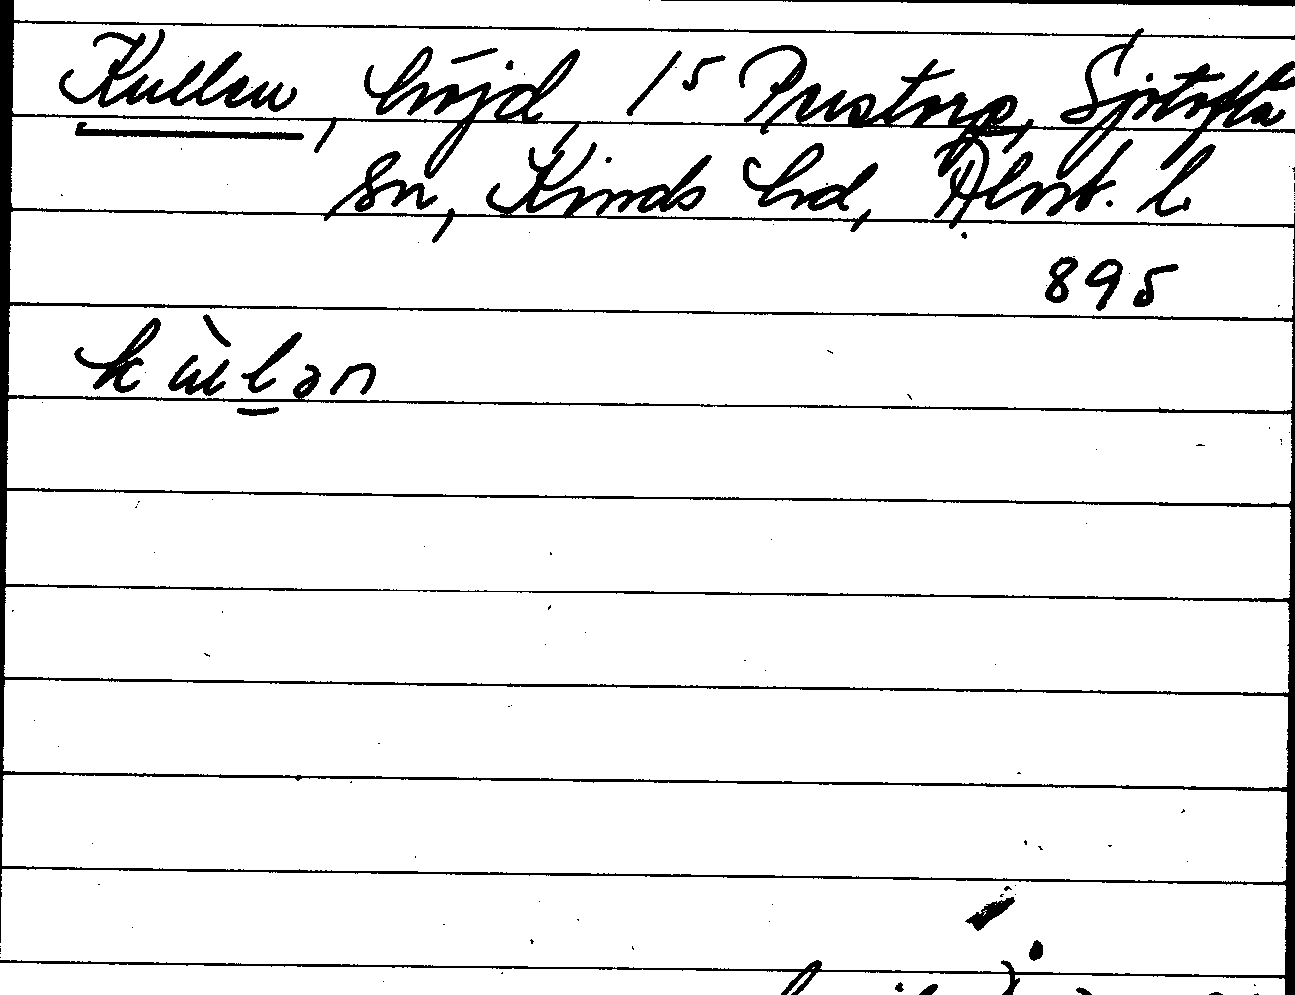 Kullen, höjd, 1⁵ Prustorp, Sjötofta
sn, Kinds hd, Älvsb. l.
895
kùl̲ən